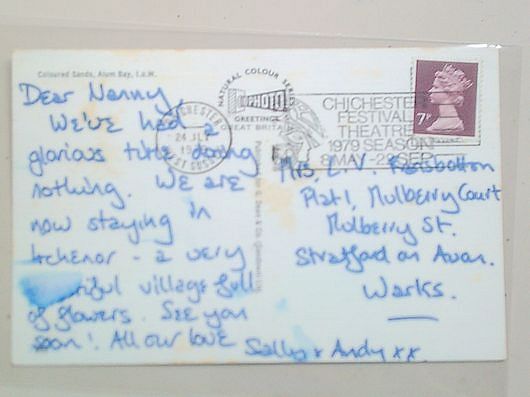 Coloured Sands, Alum Bay, I.o.W.
Dear Nanny,
We've had a
glorious time doing
nothing. We are
now staying in
Itchenor - a very
village full
of flowers. See you
soon! All our love
Sally & Andy xx
NATURAL COLOUR SERIES
PHOTO
GREETINGS
GREAT BRITAIN
CHICHESTER
24 JLY
19
WEST SUSSEX
CHICHESTER
FESTIVAL
THEATRE
1979 SEASON
8 MAY - 22 SEP
7P
Mrs. L. V.
Flat 1, Mulberry Court
Mulberry St.
Stratford on Avon.
Warks.